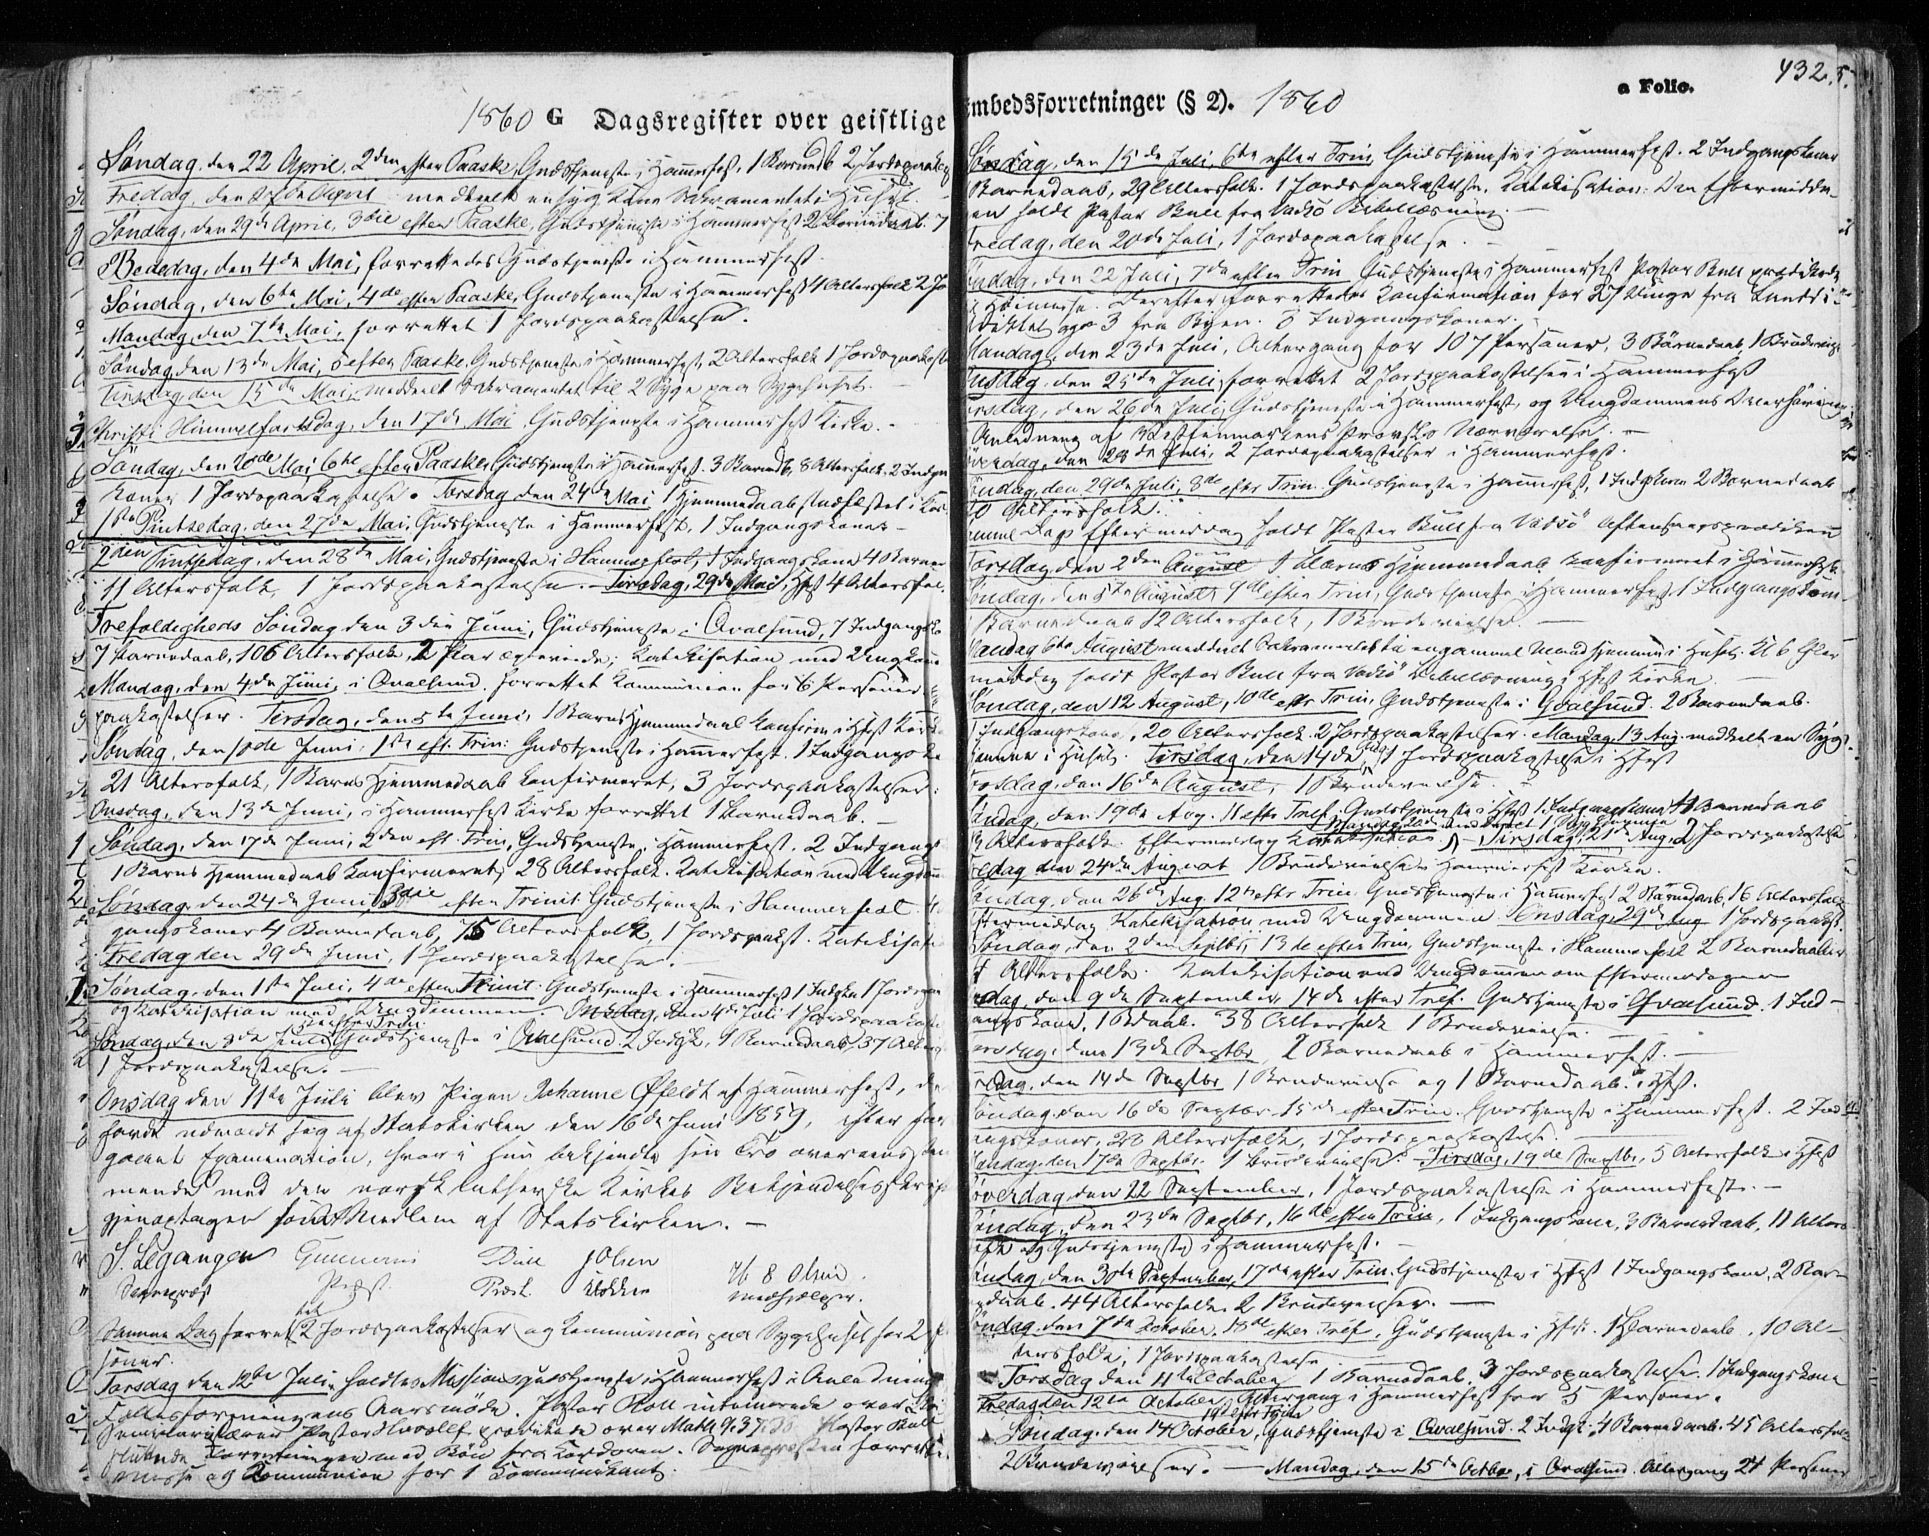 1860 G Dagsregister over geistlige
Søndag, den 22 April, 2den efter Paaske, Gudstjeneste i Hammerfest, 1 Barned. 2 Jordspaakas
Fredag den 27de April meddeelt en syg Kone Sakramentet i Huset.
Søndag, den 29de April, 3die efter Paaske, Gudstjeneste i Hammerfest 2 Barnedaab. 7
Bededag, den 4de Mai, forrettedes Gudstjeneste i Hammerfest.
Søndag, den 6te Mai, 4de efter Paaske, Gudstjeneste i Hammerfest 4 Altersfolk 2 Jo
Mandag, den 7de Mai, forrettet 1 Jordspaakastelse.
Søndag, den 13de Mai, 5 efter Paaske, Gudstjeneste i Hammerfest 2 Altersfolk 1 Jordspaakaste
Tirsdag, den 15de Mai, meddeelt Sakramentet til 2 Syge paa Sygehuset.
Christi Himmelfartsdag, den 17de Mai Gudstjeneste i Hammerfest Kirke.
Søndag, den 20de Mai, 6te efter Paaske, Gudstjeneste i Hammerfest. 3 Barned. 8 Altersfolk. 2 Indgn
koner 1 Jordspaakastelse. Torsdag den 24de Mai 1 Hjemmedaab stadfæstet i
1ste Pintsedag, den 27de Mai, Gudstjeneste i Hammerfest, 1 Indgangskoner
2den Pintsedag, den 28de Mai, Gudstjeneste i Hammerfest, 1 Indgangskone 4 Barne
11 Altersfolk, 1 Jordspaakastelse. Tirsdag, 29de Mai, Hfst 4 Altersfol.
Trefoldigheds Søndag den 3die Juni, Gudstjeneste i Qvalsund, 7 Indgangsk
7 Barnedaab, 106 Altersfolk, 2 Par ægteviede; Katekisation med Ungdom
Mandag, den 4de Juni, i Qvalsund. Forrettet Kommunion for 6 Personer
paakastelser. Tirsdag, den 5te Juni, 1 Barns Hjemmedaab konfirm i Hfst Kirk
Søndag, den 10de Juni, 1ste eft. Trin: Gudstjeneste i Hammerfest. 1 Indgangsko
21 Altersfolk, 1 Barns Hjemmedaab konfirmeret, 3 Jordspaakastelser.
Onsdag, den 13de Juni, i Hammerfest Kirke forrettet 1 Barnedaab.
Søndag, den 17de Juni, 2den eft. Trin, Gudstjeneste, Hammerfest. 2 Indgangs
1 Barns Hjemmedaab konfirmeret, 28 Altersfolk. Katekisation med Ungdom
Søndag, den 24de Juni, 3die efter Trinit Gudstjeneste i Hammerfest.
gangskoner 4 Barnedaab, 75 Altersfolk, 1 Jordspaakst. Katekisati
Fredag den 29de Juni, 1 Jordspaakastelse.
Søndag, den 1ste Juli, 4de efter Trinit. Gudstjeneste i Hammerfest 1 Indgk 1 Jordspa
og Katekisation med Ungdommen. Onsdag, den 4de Juli 1 Jordspaakast
5te efter Trin
Søndag, den 8de Juli Gudstjeneste i Qvalsund. 2 Indgk, 9 Barnedaab, 37 Alters
1 Jordspaakastelse.
Onsdag den 11te Juli blev Pigen Johanne Øfeldt af Hammerfest, de
havde udmeldt sig af Statskirken den 16de Juni 1859, efter for
gaaet Examenation, hvori hun bekjendte sin Tro overensstem
mende med den norsk lutherske Kirkes Bekjendelsesskrif
gjenoptagen som Medlem af Statskirken.
S. Legangen Bull J Olsen H 8 Olsen
Sognepræst Præst. Præst. Klokker Medhjælper.
tet
Samme Dag forret 2 Jordspaakastelser og Kommunion paa Sygehuset for 2
soner.
Torsdag den 12te Juli holdtes Missionsgudstjeneste i Hammerfest i Anledning
Fællesforeningens Aarsmøde. Pastor Roll intonerede over
Pastor Hvoslef prædikede over Math 9.37.38 Pastor Bull
sluttede Forretningen med Bøn fra Kordøren. Sognepræsten forret
Messe og Kommunion for 1 Kommunikant.
Embedsforretninger (§ 2). 1860
a Folio.
432.5.
Søndag, den 15de Juli, 6te efter Trin, Gudstjeneste i Hammerfest. 2 Indgangskoner
Barnedaab, 29 Altersfolk. 1 Jordspaakastelse. Katekisation. Om Eftermidda
gen holdt Pastor Bull fra Vadsö Bibellæsning.
Fredag, den 20de Juli, 1 Jordspaakastelse.
Søndag, den 22 Juli, 7de efter Trin Gudstjeneste i Hammerfest Pastor Bull prædikede
i Høimesse. Derefter forrettedes Konfirmation for 27 Unge fra Landdi
striktet og 3 fra Byen. 8 Indgangskoner.
Mandag, den 23de Juli, Altergang for 107 Personer, 3 Barnedaab, 1 Brudevielse
Onsdag, den 25de Juli, forrettet 2 Jordspaakastelser i Hammerfest
Torsdag, den 26de Juli, Gudstjeneste i Hammerfest, og Ungdommens Overhøring
Anledning af Vestfinmarkens Provsts Nærværelse.
Løverdag, den 28de Juli, 2 Jordspaakastelser i Hammerfest.
Søndag, den 29de Juli, 8de eftr Trin. Gudstjeneste i Hammerfest, 1 Indgkone 2 Barnedaab
Altersfolk.
Samme Dags Eftermiddag holdt Pastor Bull fra Vadsö Aftensangsprædiken
Torsdag, den 2den August 1 Barns Hjemmedaab konfirmeret i Hammerfest.
Søndag, den 5te August, 9de efter Trin, Gudstjeneste i Hammerfest, 1 Indgangskone
Barnedaab 12 Altersfolk, 1 Brudevielse.
Mandag 6te August meddeelt Sakramentet til en gammel Mand hjemme i Huset. Kl 6 Efter
middag holdt Pastor Bull fra Vadsö Bibellæsning i Hfst Kirke.
Søndag, den 12 August, 10de eftr Trin, Gudstjeneste i Qvalsund. 2 Barnedaab.
Indgangskone, 20 Altersfolk. 2 Jordspaakastelser. Mandag, 13 Aug. meddeelt en Syg
hjemme i Huset. Tirsdag, den 14de 1 Jordspaakastelse i Hfst
Torsdag, den 16de August, 1 Brudevielse.
Søndag, den 19de Aug. 11 eftr Tref, Gudstjeneste i Hfst 1 Indgangskone Barnedaab
Mandag 20de
Altersfolk. Eftermiddag Katekisation. Tirsdag, 21de Aug. 2 Jordspaakastelser
Fredag den 24de August 1 Brudevielse i Hammerfest Kirke.
Søndag, den 26de Aug. 12te eftr Trin. Gudstjeneste i Hammerfest 2 Barnedaab, 16 Altersfolk
Eftermiddag Katekisation med Ungdommen. Onsdag, 29de Aug 1 Jordspaakst.
Søndag, den 2den Septbr, 13de efter Trin, Gudstjeneste i Hammerfest 2 Barnedaaber
Altersfolk. Katekisation med Ungdommen om Eftermiddagen
Søndag, den 9de September 14de efter Tref. Gudstjeneste i Qvalsund. 1 Ind
gangskone, 1 Bdaab. 38 Altersfolk 1 Brudevielse.
Torsdag, den 13de Septbr, 2 Barnedaab i Hammerfest.
Fredag, den 14de Septbr 1 Brudevielse og 1 Barnedaab. i Hfst.
Søndag, den 16de Septbr. 15de efter Trin. Gudstjeneste i Hammerfest. 2 Ind
gangskoner, 28 Altersfolk, 1 Jordspaakastelse.
Mandag, den 17de Septbr. 1 Brudevielse. Tirsdag, 19de Septbr, 5 Altersfolk i Hfst
Løverdag, den 22 September, 1 Jordspaakastelse i Hammerfest.
Søndag, den 23de Septbr, 16de efter Trin, 1 Indgangskone, 3 Barnedaab, 11 Alters
folk og Gudstjeneste i Hammerfest.
Søndag, den 30te September, 17de efter Trin. Gudstjeneste i Hfst 1 Indgangskone, 2 Bar
nedaab. 44 Altersfolk. 2 Brudevielser.
Søndag, den 7de October. 18de efter Tref. Gudstjeneste i Hfst. 1 Barnedaab. 10 Al
tersfolk, 1 Jordspaakastelse
Torsdag den 11te October 1 Barnedaab. 3 Jordspaakastelse. 1 Indgangskone
Fredag den 12te October, Altergang i Hammerfest for 5 Personer.
19de eftr Trin
Søndag, den 14 October, Gudstjeneste i Qvalsund. 2 Indgk. 4 Barnedaab. 45 Altersfolk
2 Brudevielser. — Mandag, den 15de Octbr, i Qvalsund. Altergang 24 Personer